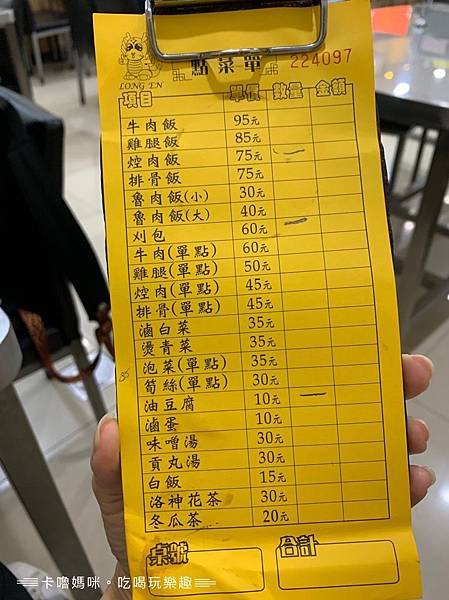 點菜單
224097
LONG EN
項目 單價 數量 金額
牛肉飯 95元
雞腿飯 85元
焢肉飯 75元
排骨飯 75元
魯肉飯(小) 30元
魯肉飯(大) 40元
刈包 60元
牛肉(單點) 60元
雞腿(單點) 50元
焢肉(單點) 45元
排骨(單點) 45元
滷白菜 35元
燙青菜 35元
泡菜(單點) 35元
筍絲(單點) 30元
油豆腐 10元
滷蛋 10元
味噌湯 30元
貢丸湯 30元
白飯 15元
洛神花茶 30元
冬瓜茶 20元
桌號 合計
卡嚕媽咪。吃喝玩樂趣